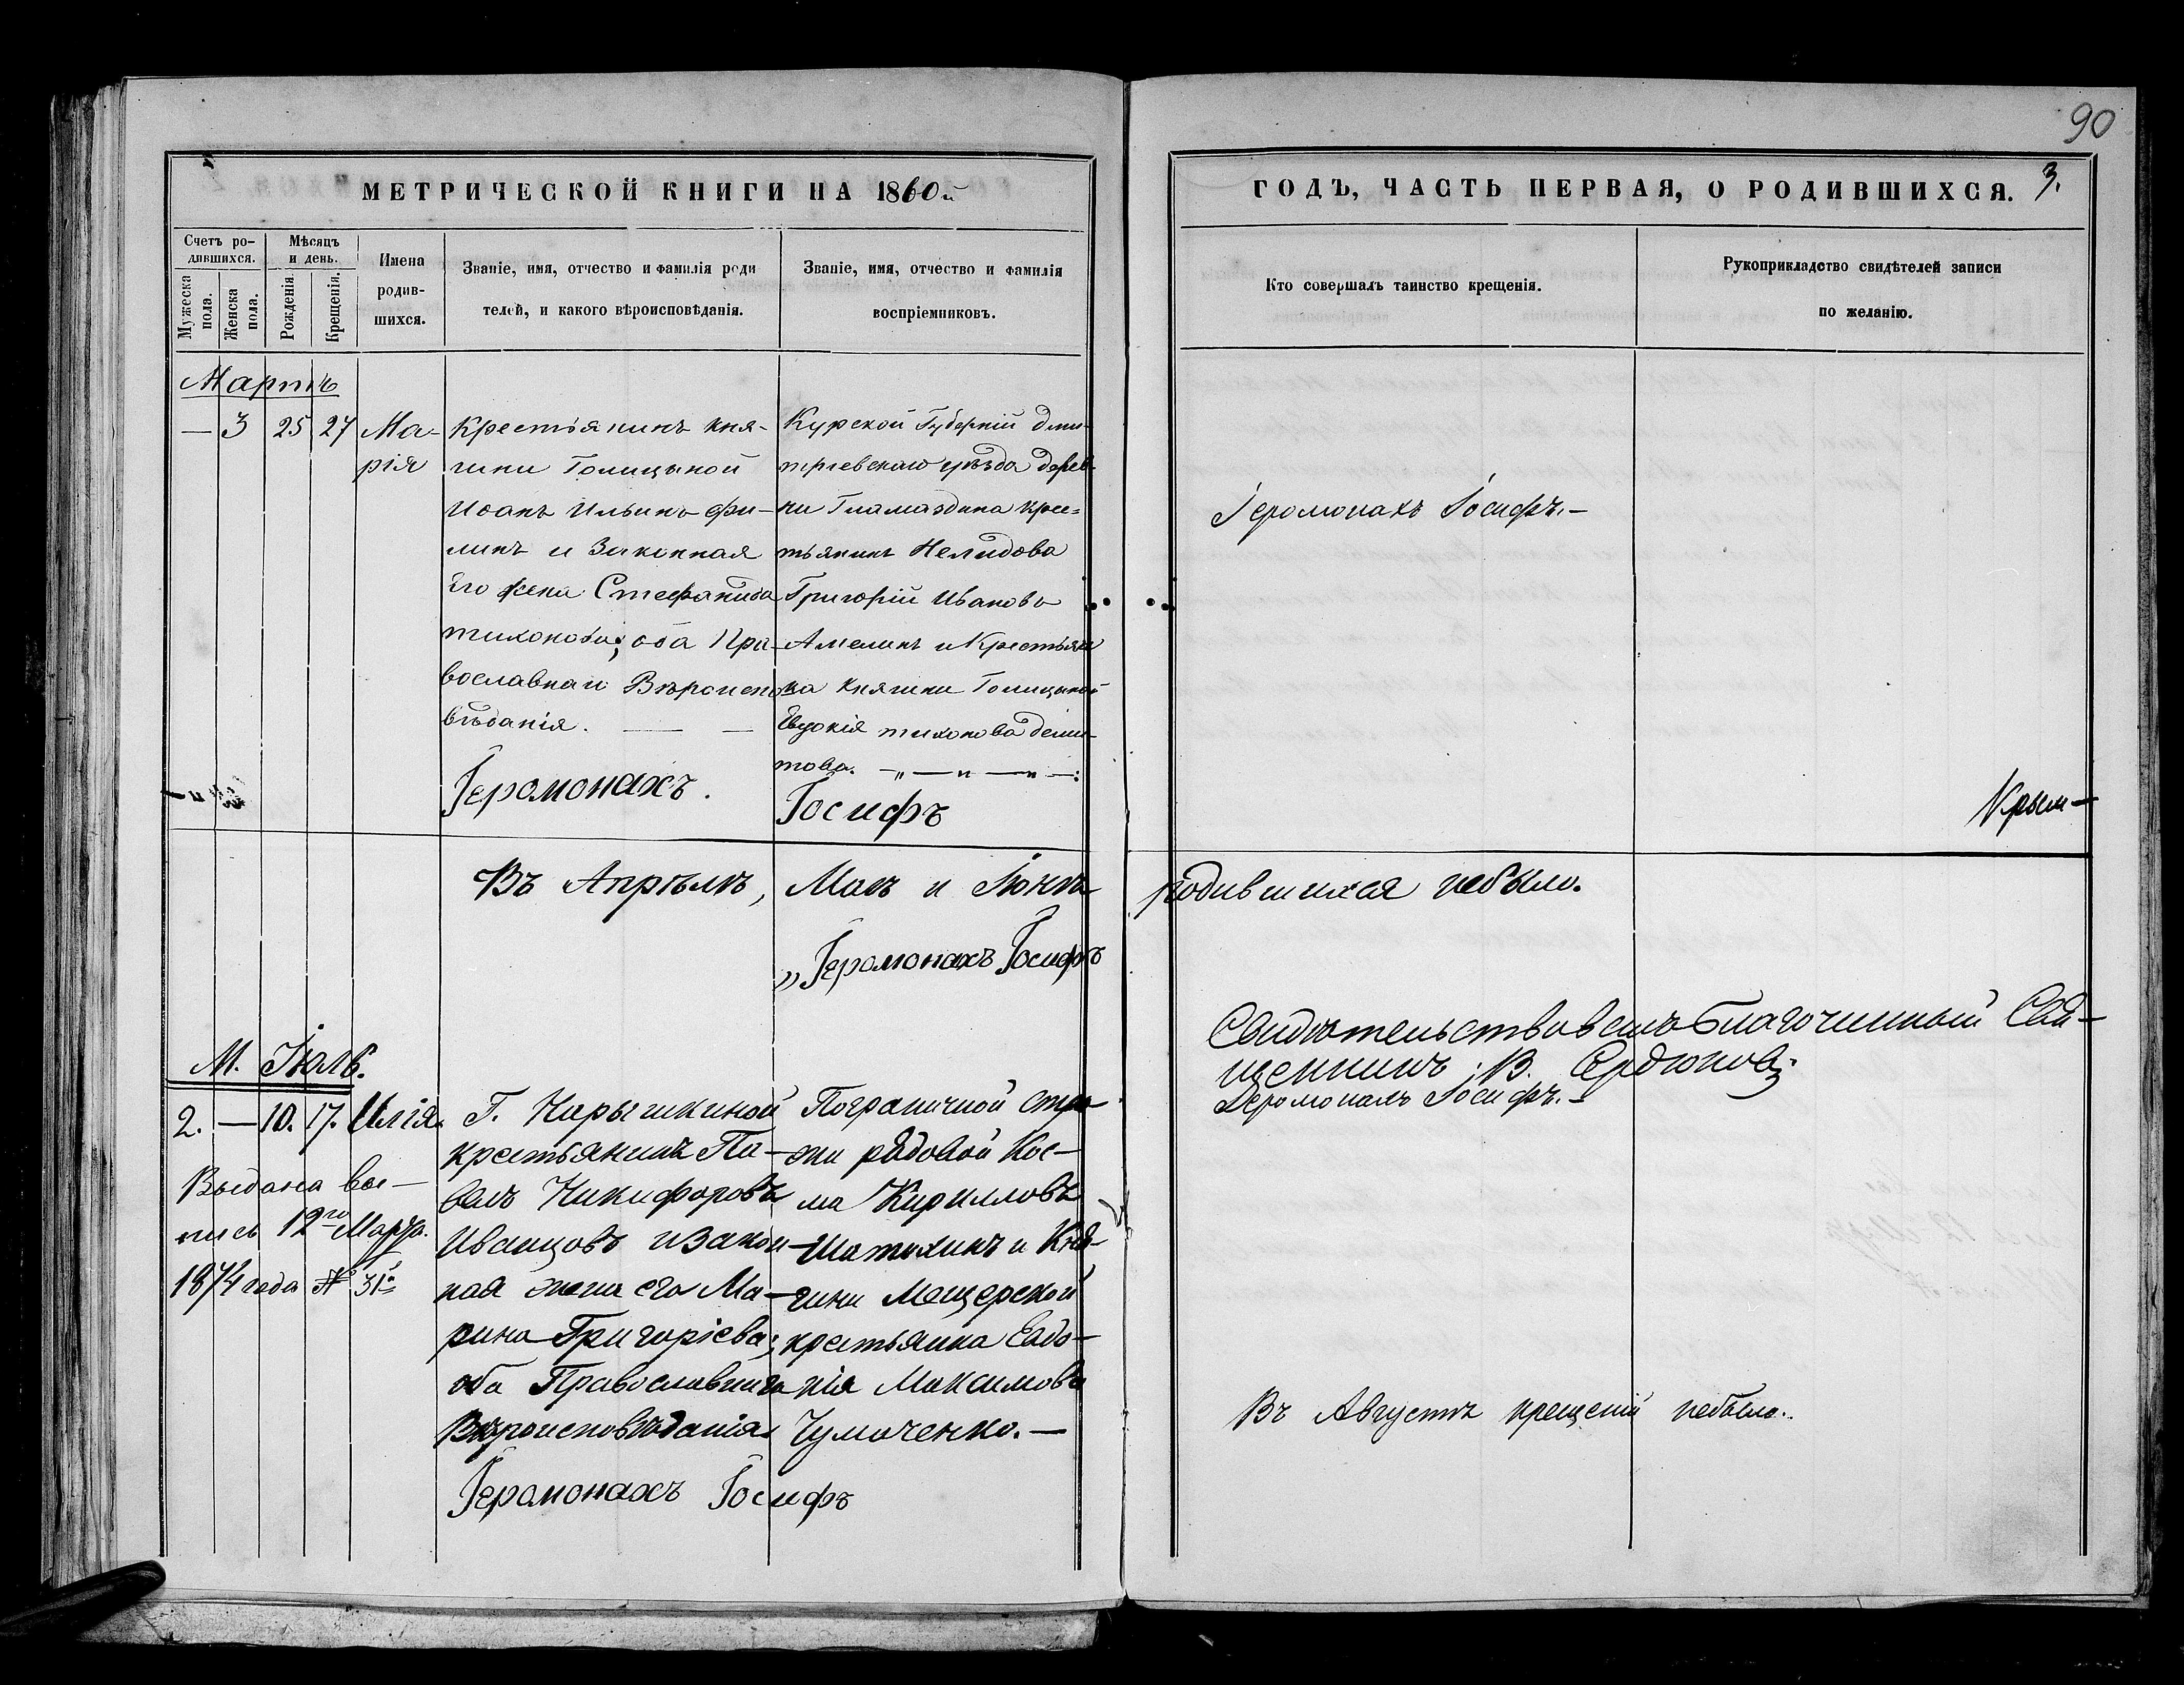 90
МЕТРИЧЕСКОЙ КНИГИ НА 1860й
ГОДЪ, ЧАСТЬ ПЕРВАЯ, О РОДИВШИХСЯ. 3.
Счетъ ро-
дившихся.
Мужеска пола.
Женска пола.
Мѣсяцъ
и день.
Рожденія.
Крещенія.
Имена
родив-
шихся.
Званіе, имя, отчество и фамилія роди
телей, и какого вѣроисповѣданія.
Званіе, имя, отчество и фамилія
воспріемниковъ.
Кто совершалъ таинство крещенія.
Рукоприкладство свидѣтелей записи
по желанію.
Мартъ
— 3 25 27 Ма-
рія
Крестьянинъ Кня-
гини Голицыной
Иоанъ Ильинъ Фи-
линъ и Законная
Его жена Стефанида
тихонова; оба Пра-
вославнаго Вѣроиспо
вѣданія. — —
Іеромонахъ.
Курской Губерніи Дми-
тріевскаго уѣзда дерев-
ни Гламаздина Крес=
тьянинъ Нелидова
Григорій Ивановъ
Амелинъ и Крестьян
ка Княгини Голицыной
Евдокія тихонова
това. —"—"—"—:
Іосифъ
Іеромонахъ Іосифъ.—
Крым—
Въ Апрѣлѣ, Маѣ и Іюнѣ родившихся небыло.
„Іеромонахъ Іосифъ
М. Іюль.
2. — 10. 17. Илія.
Выдана вы—
пись 12го Марта.
1874 года № 31й
Г. Нарышкиной
крестьянинъ Па—
велъ Никифоровъ
Иванцовъ и Закон—
ная жена его Ма—
рина Григоріева;
оба Православнаго
Вѣроисповѣданія.
Іеромонахъ Іосифъ
Пограничной Стра
жи рядовой Кос—
ма Кирилловъ
Шатилинъ и Кня-
гини Мещерской
крестьянка Евдо—
кія Максимова
Чумаченко.—
Свидѣтельствовалъ Благочинный Свя—
щенникъ В. Сердюковъ
Іеромонахъ Іосифъ.—
Въ Августѣ крещеній небыло..